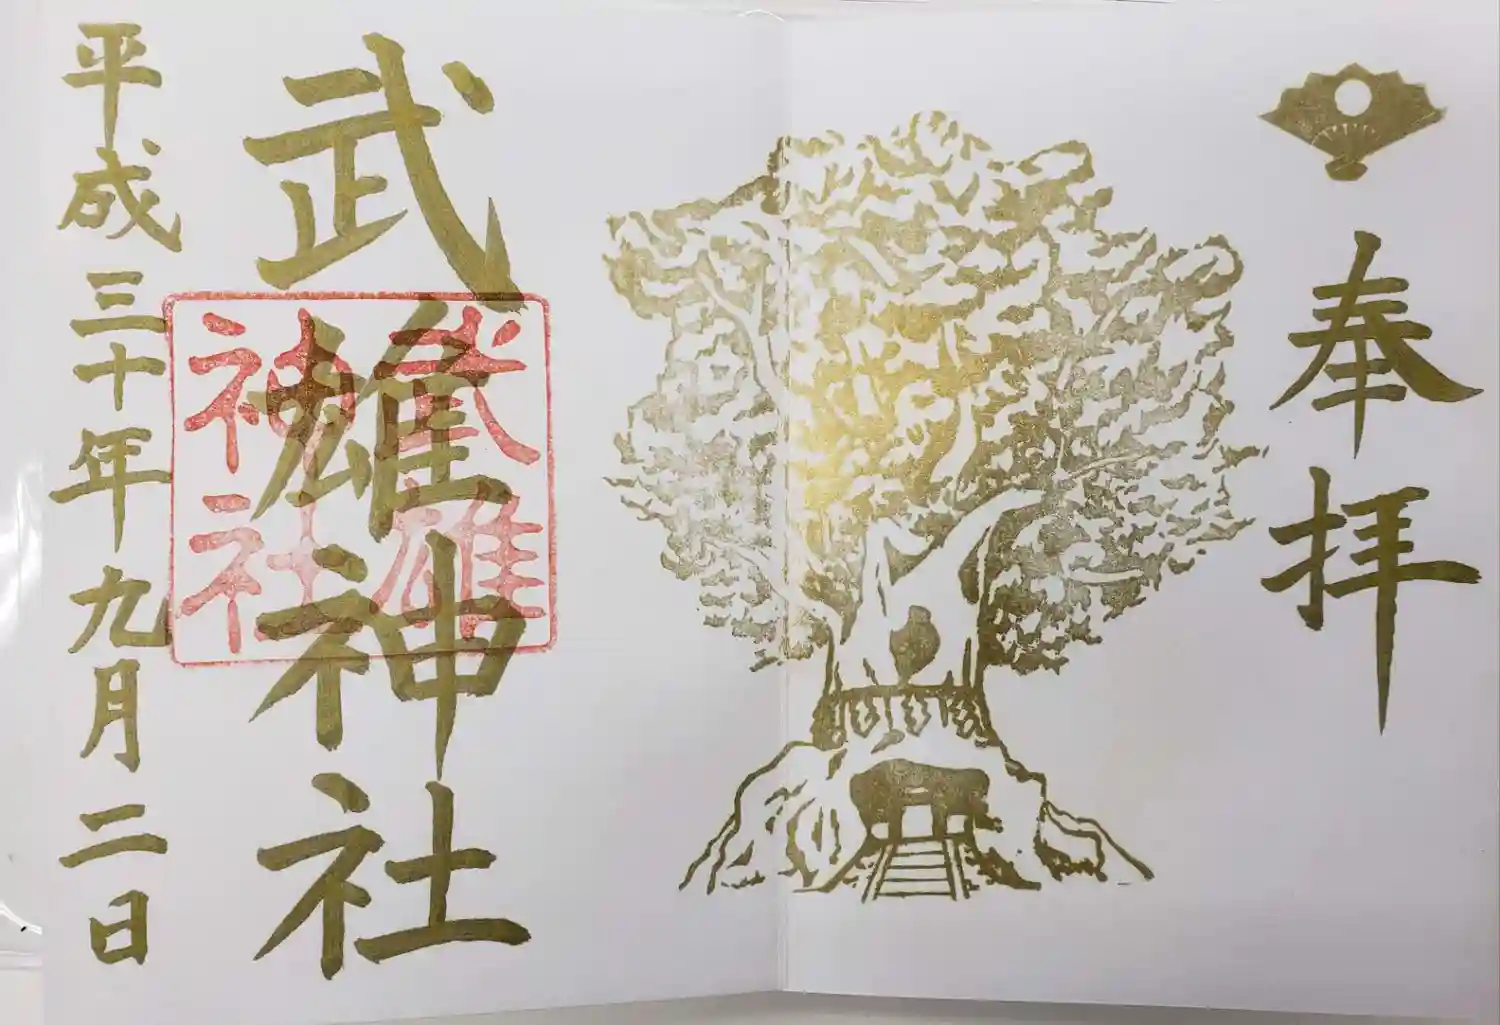 奉拝
武雄神社
武雄神社
平成三十年九月二日